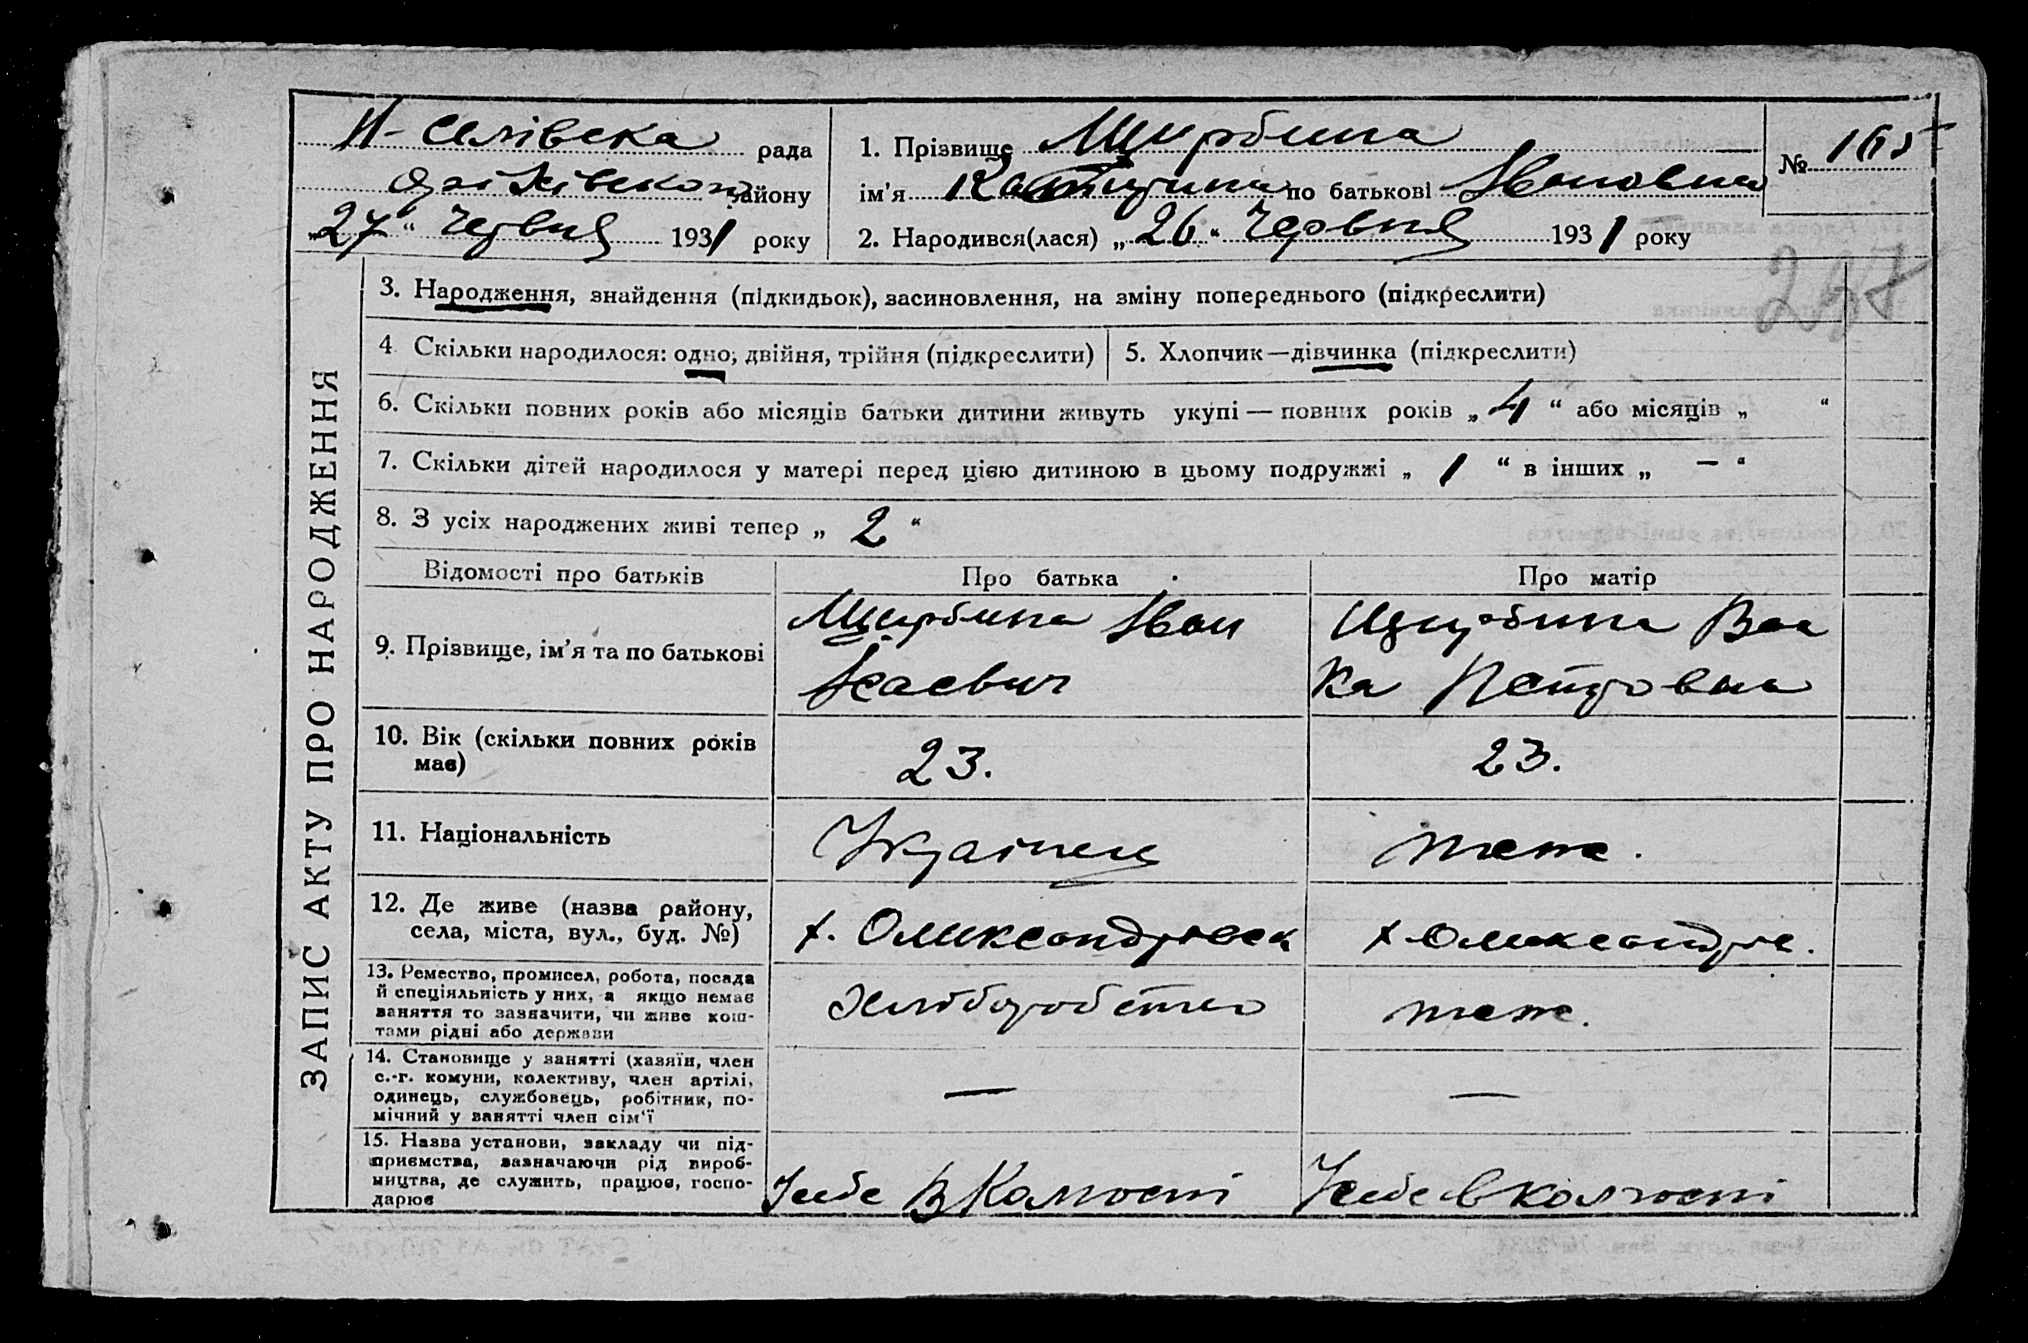 Н-Селівска рада
Оріхівського району
„27“ Червня 1931 року
1. Прізвище Щирбина
ім’я Катирина по батькові Ивановна
2. Народився(лася) „26“ Червня 1931 року
№ 165
257
ЗАПИС АКТУ ПРО НАРОДЖЕННЯ
3. Народження, знайдення (підкидьок), засиновлення, на зміну попереднього (підкреслити)
4 Скільки народилося: одно, двійня, трійня (підкреслити)
5. Хлопчик—дівчинка (підкреслити)
6. Скільки повних років або місяців батьки дитини живуть укупі — повних років „4“ або місяців „ “
7. Скільки дітей народилося у матері перед цією дитиною в цьому подружжі „ 1 “ в інших „ — “
8. З усіх народжених живі тепер „ 2 “
Відомості про батьків
Про батька
Про матір
9. Прізвище, ім’я та по батькові
Щирбина Иван
Исаевич
Щирбина
ка Петровна
10. Вік (скільки повних років
має)
23.
23.
11. Національність
Українец
теж.
12. Де живе (назва району,
села, міста, вул., буд. №)
х. Олександровск
х. Олександров.
13. Ремество, промисел, робота, посада
й спеціяльність у них, а якщо немає
заняття то зазначити, чи живе кош-
тами рідні або держави
Хліборобство
теж.
14. Становище у занятті (хазяїн, член
с.-г. комуни, колективу, член артілі,
одинець, службовець, робітник, по-
мічний у занятті член сім‘ї
—
—
15. Назва установи, закладу чи під-
приємства, зазначаючи рід вироб-
ництва, де служить, працює, госпо-
дарює
У себе в Колгоспі
У себе в колгоспі